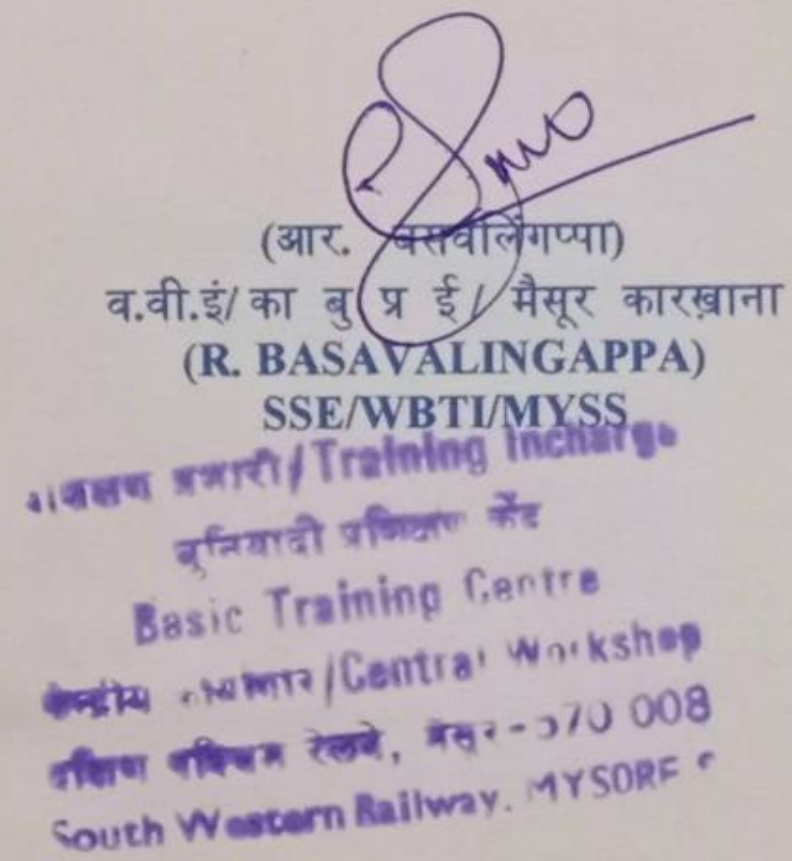 (आर. बसवलिंगप्पा)
व.वी.इं/ का बु प्र ई/ मैसूर कारख़ाना
(R. BASAVALINGAPPA)
SSE/WBTI/MYSS
प्रभारी/Training Incharge
बुनियादी प्रशिक्षण केंद
Basic Training Centre
/Central Workshop
दक्षिण पश्चिम रेलवे, मैसूर-570 008
South Western Railway. MYSORE